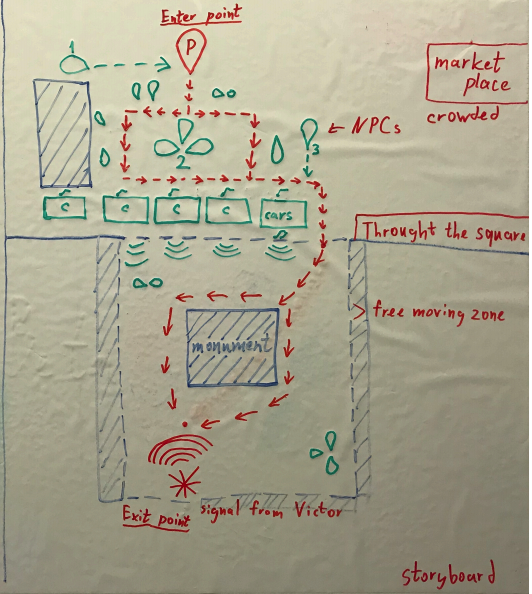 Enter point
1
P
market
place
crowded
2
3
NPCs
c
c
c
c
cars
Throught the square
free moving zone
monument
Exit point
signal from Victor
storyboard